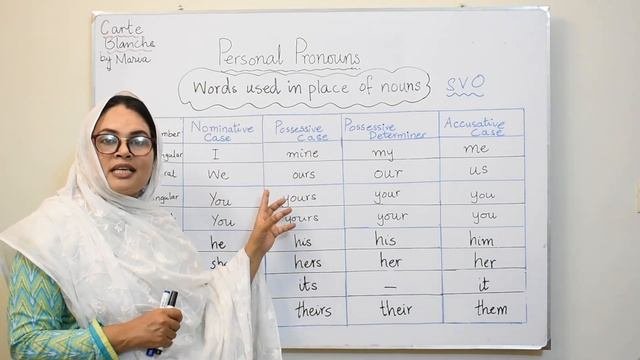 Carte
Blanche
by Marva
Personal Pronouns
Words used in place of nouns
SVO
Nominative Case Possessive Case Possessive Determiner Accusative Case
I mine my me
We ours our us
You yours your you
You yours your you
he his his him
hers her her
its — it
theirs their them